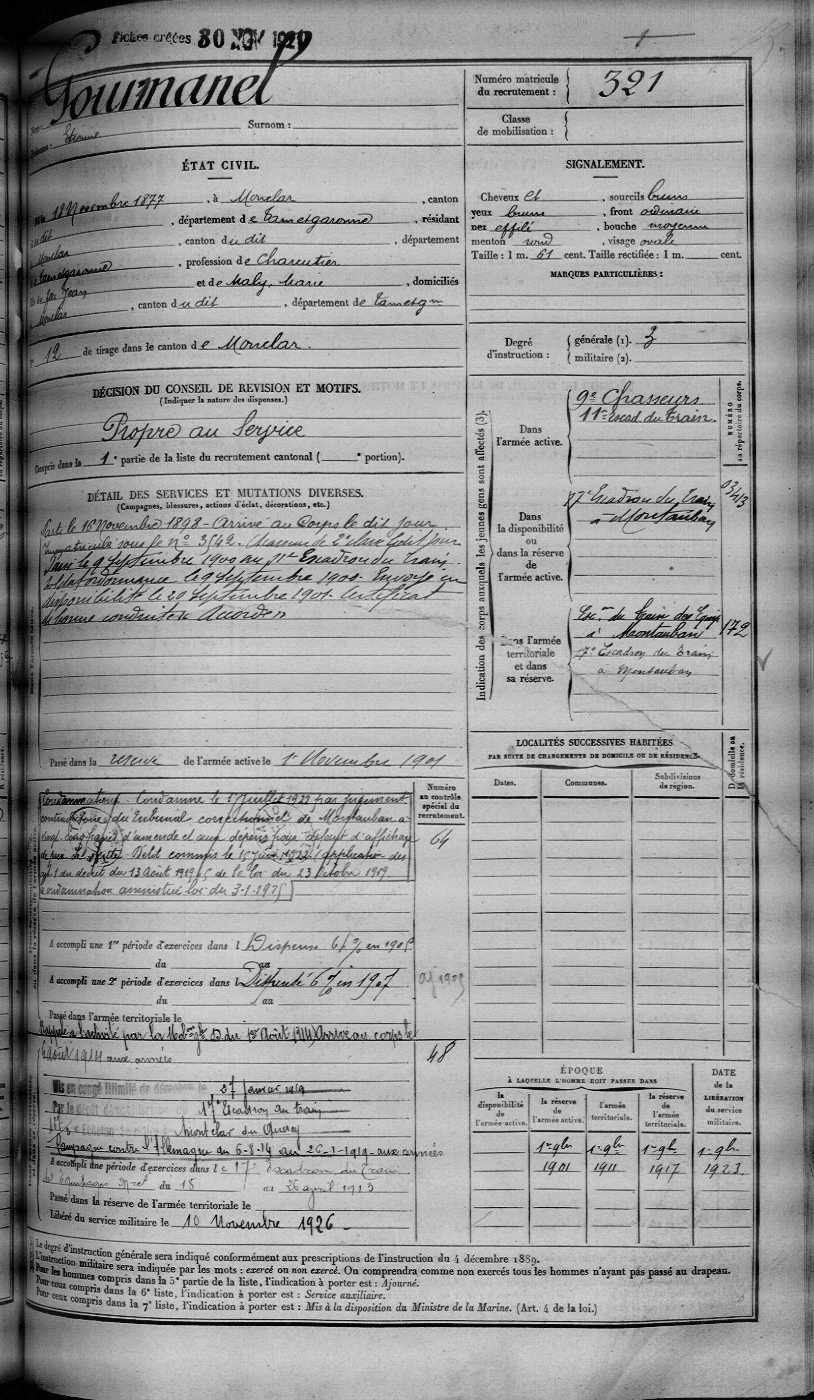 Fiches créées 30 NOV 1920
Numéro matricule
du recrutement : 321
Surnom :
Etienne
Classe
de mobilisation :
ÉTAT CIVIL.
né le 18 Novembre 1877, à Monclar, canton
du dit, département de Tarnetgaronne, résidant
Monclar, canton du dit, département
de Tarnetgaronne, profession de Charcutier
fils de feu Jean et de Maly, Marie, domiciliés
Monclar, canton du dit, département de Tarnetgne
N° 12 de tirage dans le canton de Monclar.
SIGNALEMENT.
Cheveux et, sourcils bruns
yeux bruns, front ordinaire
nez effilé, bouche moyenne
menton rond, visage ovale
Taille : 1 m. 61 cent. Taille rectifiée : 1 m. cent.
MARQUES PARTICULIÈRES :
Degré
d'instruction :
générale (1). 3
militaire (2).
DÉCISION DU CONSEIL DE REVISION ET MOTIFS.
(Indiquer la nature des dispenses.)
Propre au Service
Compris dans la 1e partie de la liste du recrutement cantonal ( e portion).
DÉTAIL DES SERVICES ET MUTATIONS DIVERSES.
(Campagnes, blessures, actions d'éclat, décorations, etc.)
Parti le 16 Novembre 1898 - Arrivé au Corps le dit jour
immatriculé sous le n° 3542. Chasseur de 2e classe le dit jour
Passé le 9 Septembre 1900 au 11e Escadron du Train
le 9 Septembre 1900. Envoyé en
disponibilité le 20 Septembre 1901. Certificat
de bonne conduite Accordé
Passé dans la réserve de l'armée active le 1 Novembre 1901
Indication des corps auxquels les jeunes gens sont affectés (3).
NUMÉRO
au répertoire du corps.
Dans
l'armée active.
9e Chasseurs
11e Escad du Train
Dans
la disponibilité
ou
dans la réserve
de
l'armée active.
17e Escadron du Train
à Montauban
0343
Dans l'armée
territoriale
et dans
sa réserve.
Esc.on du Train des Equip
à Montauban
172
17e Escadron du Train
à Montauban
LOCALITÉS SUCCESSIVES HABITÉES
PAR SUITE DE CHANGEMENTS DE DOMICILE OU DE RÉSIDENCE.
Dates.
Communes.
Subdivisions
de région.
D. domicile ou
R. résidence.
Numéro
au contrôle
spécial du
recrutement.
64
Condamnation - Condamné le 5 Juillet 1922 par jugement
contradictoire du Tribunal correctionnel de Montauban à
vingt cinq francs d'amende et aux dépens pour défaut d'affichage
de prix. Délit commis le 15 Juin 1922 (application des
art. 1 du décret du 13 Août 1919 5 de la loi du 23 octobre 1919
condamnation amnistiée loi du 3-1-1925
A accompli une 1re période d'exercices dans l Dispensé 6 % en 1905
du au
A accompli une 2e période d'exercices dans l Dispensé 6 % en 1907
du au
aj 1905
Passé dans l'armée territoriale le
Rappelé à l'activité par la Mob.on gle D du 1er Août 1914 Arrivé au corps le
6 Août 1914 aux armées
48
Mis en congé illimité de démobilisation le 27 Janvier 1919
17e Escadron du Train
Montclar du Quercy
Campagne contre l'Allemagne du 6-8-14 au 26-1-1919 - aux armées
A accompli une période d'exercices dans le 17e Escadron du Train
du 15 au 26 avril 1913
Passé dans la réserve de l'armée territoriale le
Libéré du service militaire le 10 Novembre 1926
ÉPOQUE
À LAQUELLE L'HOMME DOIT PASSER DANS
DATE
de la
LIBÉRATION
du service
militaire.
la
disponibilité
de
l'armée active.
la réserve
de
l'armée active.
l'armée
territoriale.
la réserve
de
l'armée
territoriale.
1er 9bre
1901
1er 9bre
1911
1er 9bre
1917
1er 9bre
1923
Le degré d'instruction générale sera indiqué conformément aux prescriptions de l'instruction du 4 décembre 1889.
L'instruction militaire sera indiquée par les mots : exercé ou non exercé. On comprendra comme non exercés tous les hommes n'ayant pas passé au drapeau.
Pour les hommes compris dans la 5e partie de la liste, l'indication à porter est : Ajourné.
Pour ceux compris dans la 6e liste, l'indication à porter est : Service auxiliaire.
Pour ceux compris dans la 7e liste, l'indication à porter est : Mis à la disposition du Ministre de la Marine. (Art. 4 de la loi.)